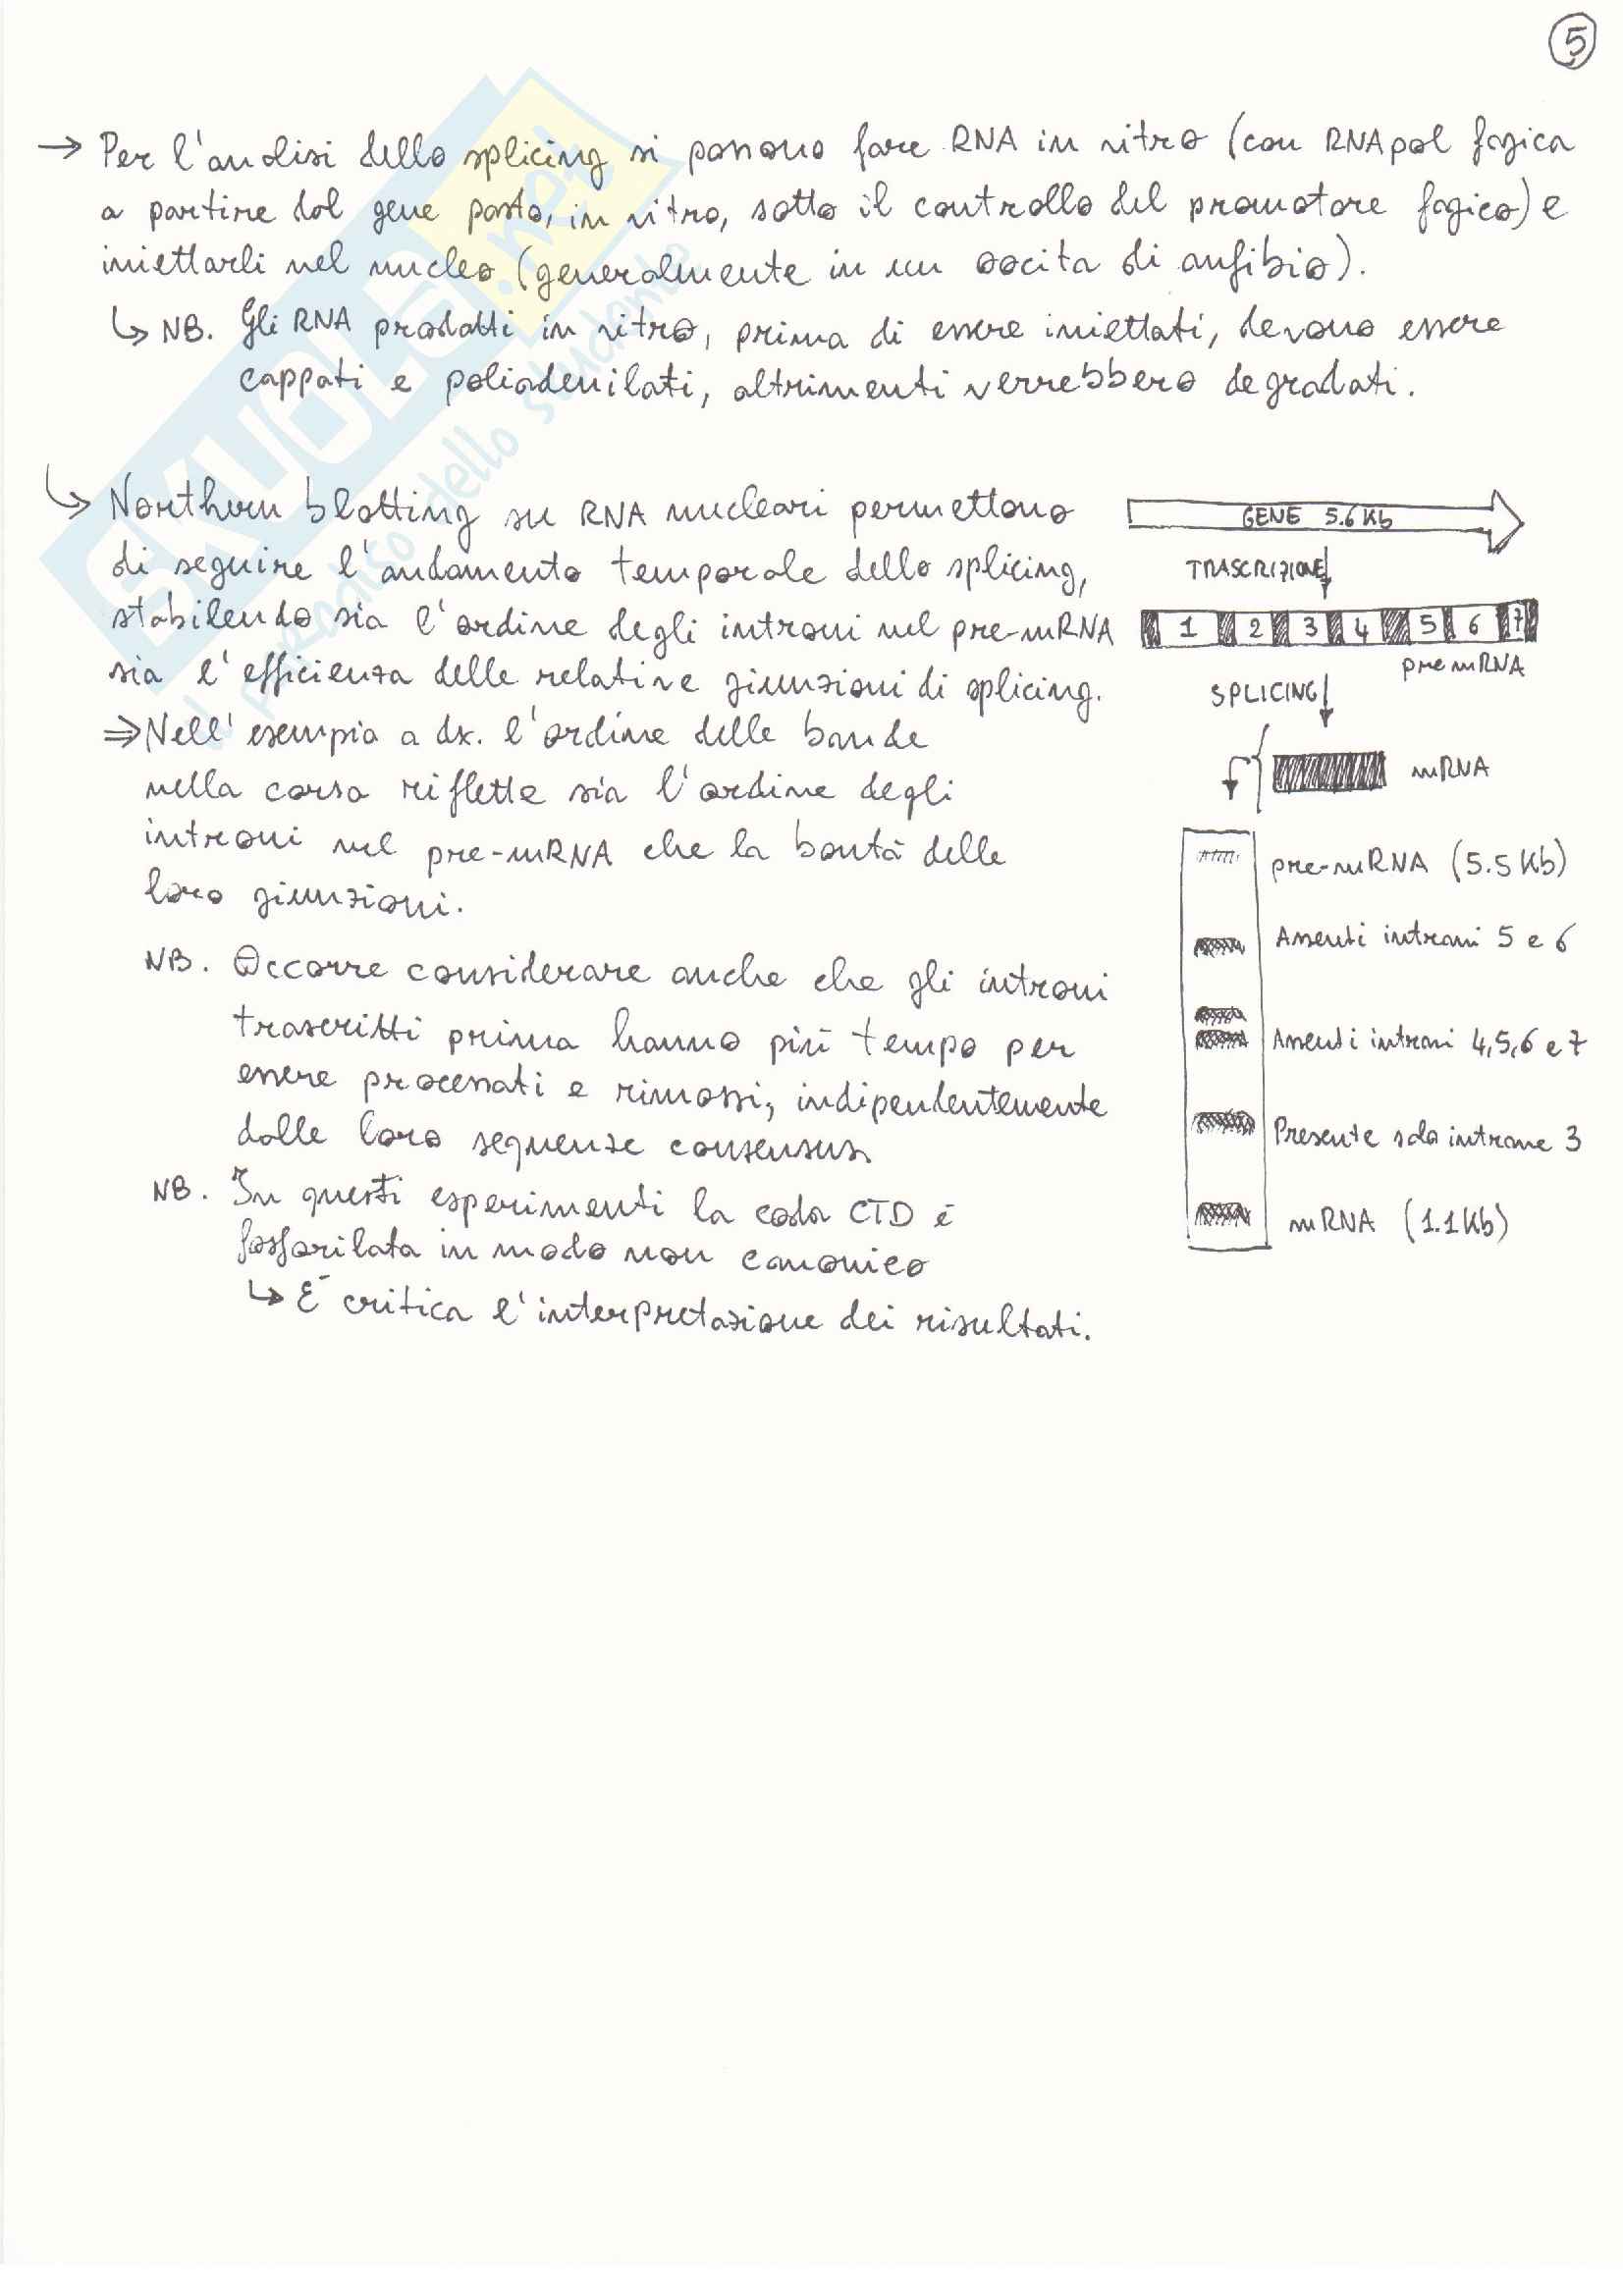 5
→ Per l'analisi dello splicing si possono fare RNA in vitro (con RNA pol fagica
a partire dal gene posto, in vitro, sotto il controllo del promotore fagico) e
iniettarli nel nucleo (generalmente in un oocita di anfibio).
↳ NB. Gli RNA prodotti in vitro, prima di essere iniettati, devono essere
cappati e poliadenilati, altrimenti verrebbero degradati.
↳ Northern blotting su RNA nucleari permettono
di seguire l'andamento temporale dello splicing,
stabilendo sia l'ordine degli introni nel pre-mRNA
sia l'efficienza delle relative giunzioni di splicing.
⇒ Nell'esempio a dx. l'ordine delle bande
nella corsa riflette sia l'ordine degli
introni nel pre-mRNA che la bontà delle
loro giunzioni.
NB. Occorre considerare anche che gli introni
trascritti prima hanno più tempo per
essere processati e rimossi, indipendentemente
dalle loro sequenze consensus.
NB. In questi esperimenti la coda CTD è
fosforilata in modo non canonico
↳ È critica l'interpretazione dei risultati.
GENE 5.6 Kb
TRASCRIZIONE
1 2 3 4 5 6 7
pre mRNA
SPLICING
mRNA
pre-mRNA (5.5 Kb)
Assenti introni 5 e 6
Assenti introni 4,5,6 e 7
Presente solo introne 3
mRNA (1.1 Kb)
SKUOLA.net
il paradiso dello studente